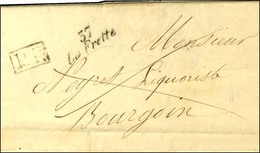 37
La Frette
Monsieur
Negret Liquoriste
Bourgoin